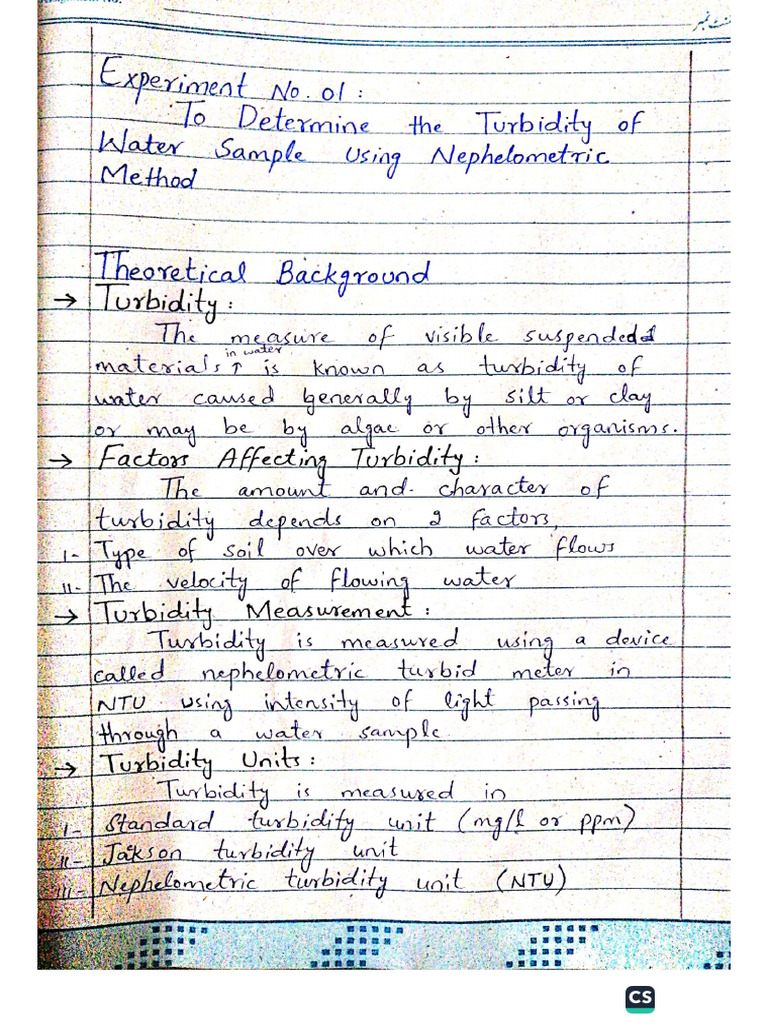 Experiment No. 01 :
To Determine the Turbidity of
Water Sample Using Nephelometric
Method
Theoretical Background
→ Turbidity :
The measure of visible suspended
materials ↑ in water is known as turbidity of
water caused generally by silt or clay
or may be by algae or other organisms.
→ Factors Affecting Turbidity :
The amount and character of
turbidity depends on 2 factors,
I- Type of soil over which water flows
II- The velocity of flowing water
→ Turbidity Measurement :
Turbidity is measured using a device
called nephelometric turbid meter in
NTU using intensity of light passing
through a water sample.
→ Turbidity Units :
Turbidity is measured in
I- Standard turbidity unit (mg/l or ppm)
II- Jakson turbidity unit
III- Nephelometric turbidity unit (NTU)
CS